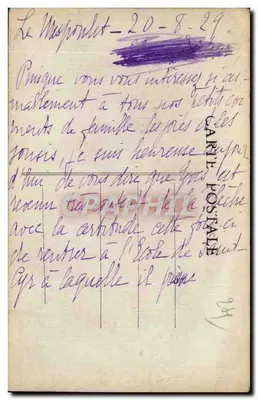 Le Mespoulet - 20-8-29
Puisque vous vous intéressez si ai-
mablement à tous nos petits
ments de famille, les joies et les
soucis, je suis heureuse aujour
d'hui de vous dire que est
revenu
avec la certitude cette fois-ci
de rentrer à l'Ecole de Saint
Cyr à laquelle il
CARTE POSTALE
CARPHILA